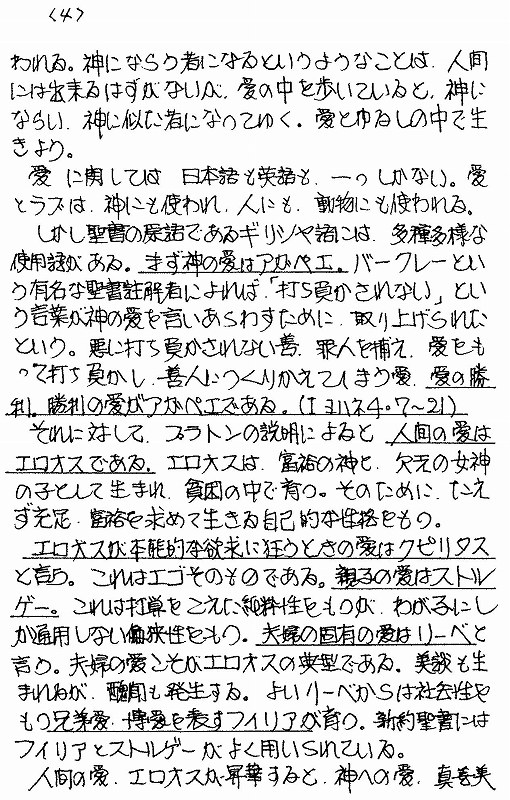 <4>
われる。神にならう者になるというようなことは、人間
には出来るはずがないが、愛の中を歩いていると、神に
ならい、神に似た者になってゆく。愛とゆるしの中で生
きよう。
愛に関しては 日本語も英語も、一つしかない。愛
とラブは、神にも使われ、人にも、動物にも使われる。
しかし聖書の原語であるギリシヤ語には、多種多様な
使用語がある。まず神の愛はアガペエ。バークレーとい
う有名な聖書註解者によれば、「打ち負かされない」とい
う言葉が神の愛を言いあらわすために、取り上げられた
という。悪に打ち負かされない善、罪人を捕え、愛をも
って打ち負かし、善人につくりかえてしまう愛、愛の勝
利、勝利の愛がアガペエである。(Iヨハネ4・7〜21)
それに対して、プラトンの説明によると、人間の愛は
エロオスである。エロオスは、富裕の神と、欠乏の女神
の子として生まれ、貧困の中で育つ。そのために、たえ
ず充足、富裕を求めて生きる自己的な性格をもつ。
エロオスが本能的な欲求に狂うときの愛はクピリタス
と言う。これはエゴそのものである。親子の愛はストル
ゲー。これは打算をこえた純粋性をもつが、わが子にし
か通用しない偏狭性をもつ。夫婦の固有の愛はリーベと
言う。夫婦の愛こそがエロオスの典型である。美談も生
まれるが、醜聞も発生する。よいリーベからは社会性を
もつ兄弟愛、博愛を表すフィリアが育つ。新約聖書には
フィリアとストルゲーがよく用いられている。
人間の愛、エロオスが昇華すると、神への愛、真善美